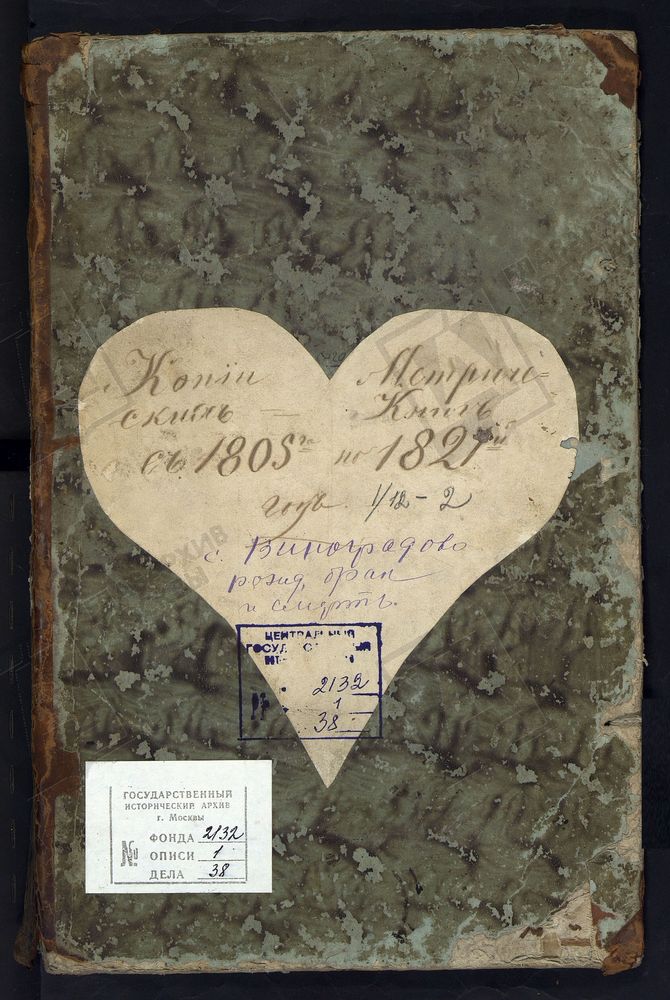 Копiи Метриче=
скихъ — Книгъ
съ 1805го по 1821й
годъ. 1/12 – 2
с. Виноградово
рожд, брак
и смерть.
ЦЕНТРАЛЬНЫЙ
2132
1
№ 38
ГОСУДАРСТВЕННЫЙ
ИСТОРИЧЕСКИЙ АРХИВ
г. Москвы
ФОНДА 2132
№ ОПИСИ 1
ДЕЛА 38